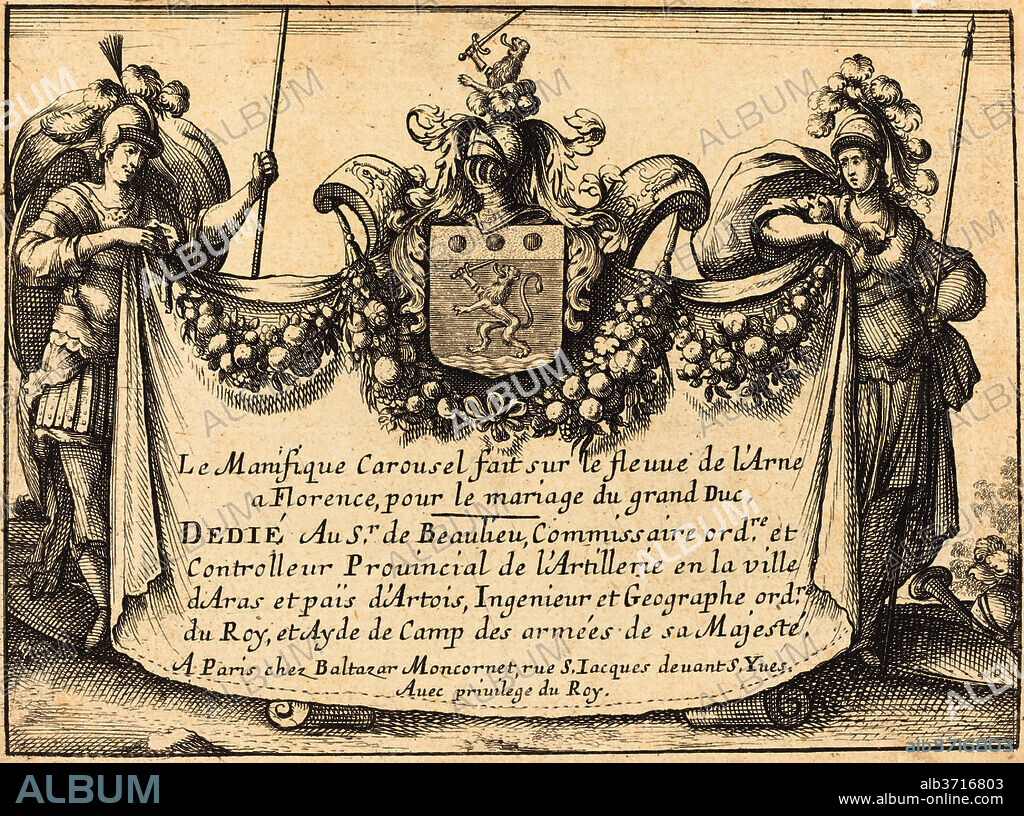 Le Manifique Carousel fait sur le fleuue de l'Arne
a Florence, pour le mariage du grand Duc,
DEDIÉ Au S.r de Beaulieu, Commissaire ord.re et
Controlleur Prouincial de l'Artillerie en la ville
d'Aras et païs d'Artois, Ingenieur et Geographe ord.r
du Roy, et Ayde de Camp des armées de sa Majesté.
A Paris chez Baltazar Moncornet rue S. Iacques deuant S. Yues.
Auec priuilege du Roy.
alb3716803
ALBUM
alb3716803
www.album-online.com